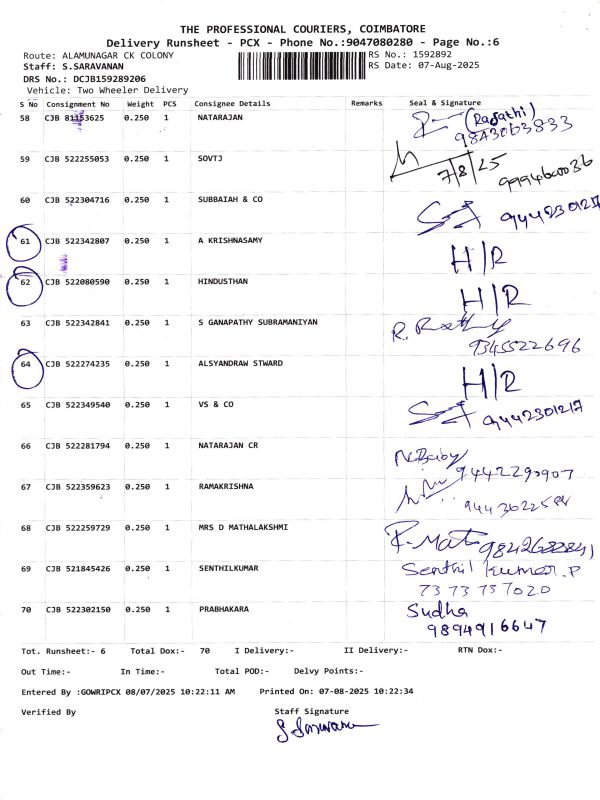 THE PROFESSIONAL COURIERS, COIMBATORE
Delivery Runsheet - PCX - Phone No.:9047080280 - Page No.:6
Route: ALAMUNAGAR CK COLONY RS No.: 1592892
Staff: S.SARAVANAN RS Date: 07-Aug-2025
DRS No.: DCJB159289206
Vehicle: Two Wheeler Delivery
S No Consignment No Weight PCS Consignee Details Remarks Seal & Signature
58 CJB 81153625 0.250 1 NATARAJAN (Rajathi)
9843063833
59 CJB 522255053 0.250 1 SOVTJ
7/8/25
60 CJB 522304716 0.250 1 SUBBAIAH & CO 9442301217
61 CJB 522342807 0.250 1 A KRISHNASAMY H/R
62 CJB 522080590 0.250 1 HINDUSTHAN H/R
63 CJB 522342841 0.250 1 S GANAPATHY SUBRAMANIYAN R.
9345522696
64 CJB 522274235 0.250 1 ALSYANDRAW STWARD H/R
65 CJB 522349540 0.250 1 VS & CO 9442301217
66 CJB 522281794 0.250 1 NATARAJAN CR N.Baby
9442290907
67 CJB 522359623 0.250 1 RAMAKRISHNA
68 CJB 522259729 0.250 1 MRS D MATHALAKSHMI
69 CJB 521845426 0.250 1 SENTHILKUMAR Senthil Kumar.P
7373737020
70 CJB 522302150 0.250 1 PRABHAKARA Sudha
9894916647
Tot. Runsheet:- 6 Total Dox:- 70 I Delivery:- II Delivery:- RTN Dox:-
Out Time:- In Time:- Total POD:- Delvy Points:-
Entered By :GOWRIPCX 08/07/2025 10:22:11 AM Printed On: 07-08-2025 10:22:34
Verified By Staff Signature